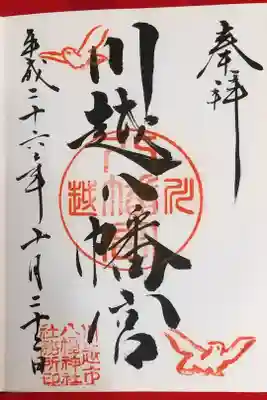 奉拝
川越八幡宮
平成二十六年十月二十三日
川越
川越市
八幡神社
社務所印